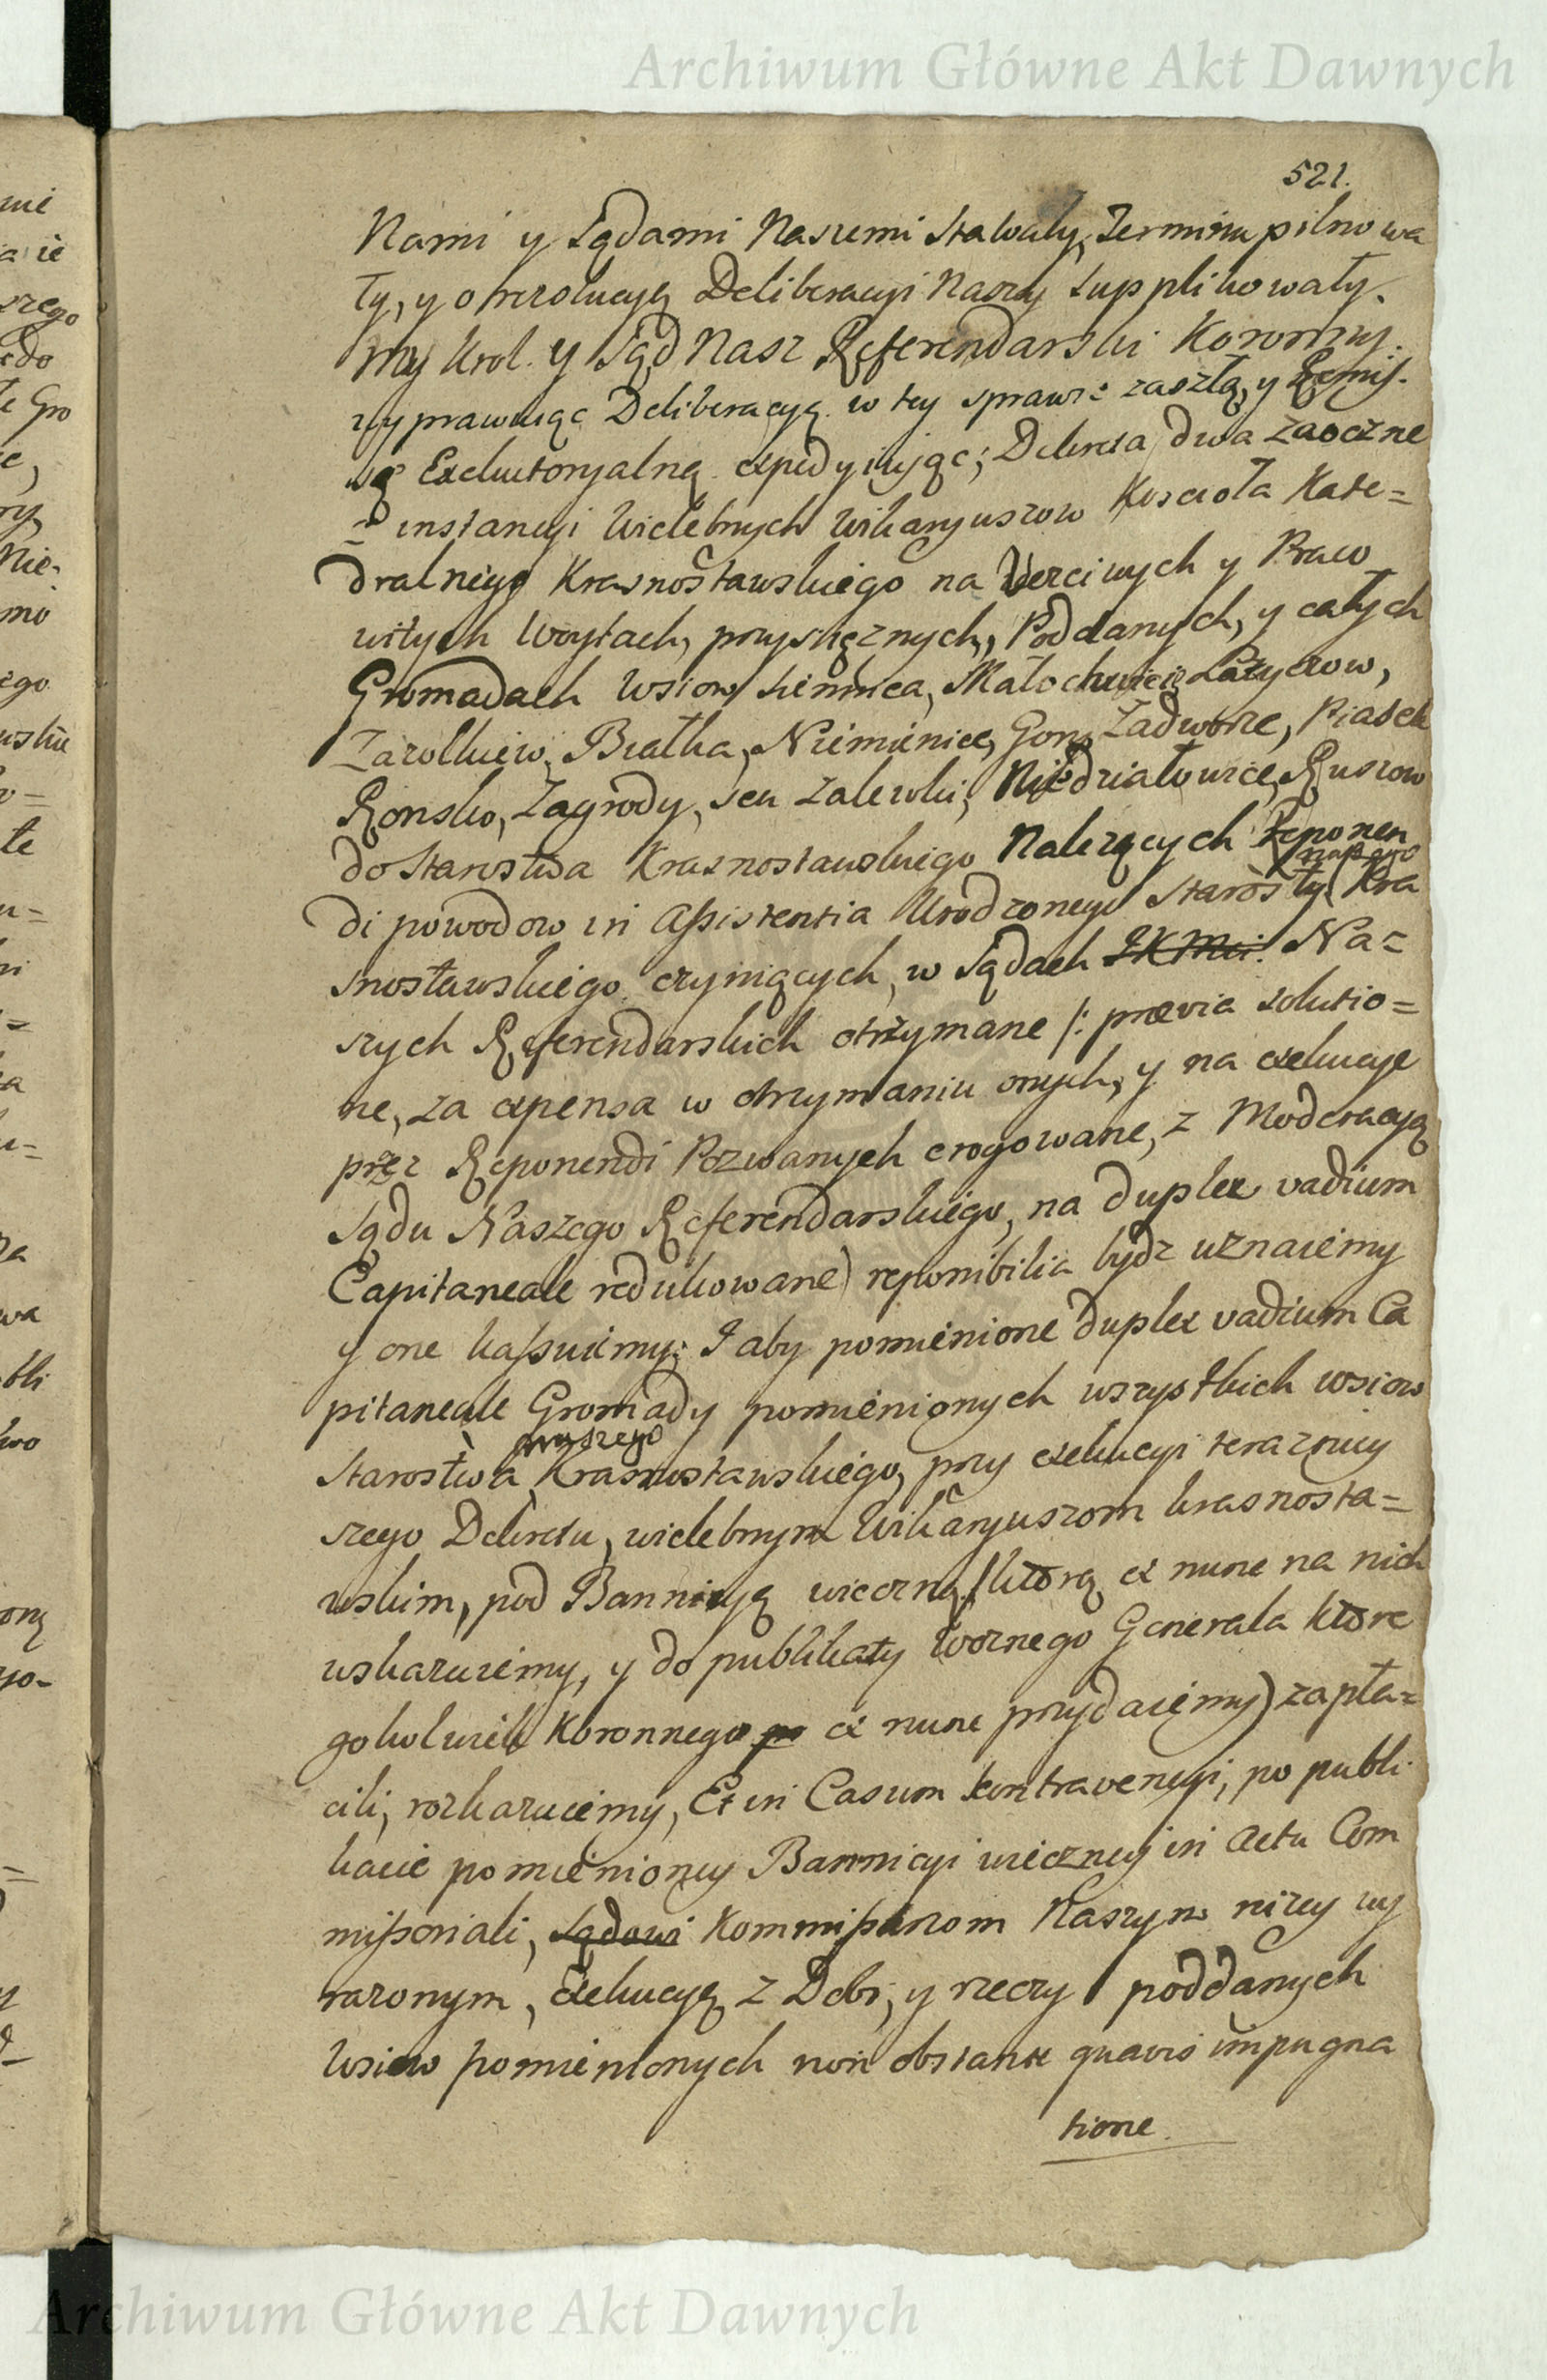 Archiwum Główne Akt Dawnych
521.
Nami y Sądami Naszemi stawały, Terminu pilnowa
ły, y o rezolucyą Deliberacyi Naszey supplikowały.
My Krol. y Sąd Nasz Referendarski Koronny.
wyprawuiąc Deliberacyą w tey sprawie zaszłą, y Remis.
są Exekutoryalną expedyiuiąc; Dekreta dwa zaoczne
z instancyi Wielebnych Wikaryuszow Koscioła Kate=
dralnego Krasnostawskiego na Uczciwych y Praco
witych Woytach, przysięznych, Poddanych, y całych
Gromadach Wsiow Siennica, Małochwiey Łatyczow,
Zarolkiew, Białka, Niemienice, Gory, Zadworze, Piasek
Ronsko, Zagrody, seu Zalewki, Niedziałowice, Ruszow
do Starostwa Krasnostawskiego Nalezących Reponen
di powodow in Assistentia Urodzonego Starosty Kra
naszego
snostawskiego czyniących, w Sądach JKMci. Na=
szych Referendarskich otrzymane /: prævia solutio=
ne, za expensa w otrzymaniu onych, y na exekucye
przez Reponendi Pozwanych erogowane, z Moderacyą
Sądu Naszego Referendarskiego, na duplex vadium
Capitaneale redukowane) reponibilia bydz uznaiemy
y one kassuiemy; I aby pomienione duplex vadium Ca
pitaneale Gromady pomienionych wszystkich wsiow
Starostwa Krasnostawskiego, przy exekucyi terazniey
naszego
szego Dekretu, wielebnym Wikaryuszom krasnosta=
wskim, pod Bannicyą wieczną /ktorą ex nunc na nich
wskazuiemy, y do publikaty Woznego Generała ktore
gokolwiek Koronnego po ex nunc przydaięmy) zapła=
cili, rozkazuiemy, Et in Casum kontravencyi, po publi
kacie pomienioney Bannicyi wieczney in Actu Com
missoriali, Sądowi Kommissarzom Naszym nizey wy
razonym, Exekucyą z Dobr, y rzeczy poddanych
Wsiow pomienionych non obstante quavis impugna
tione.
Archiwum Główne Akt Dawnych